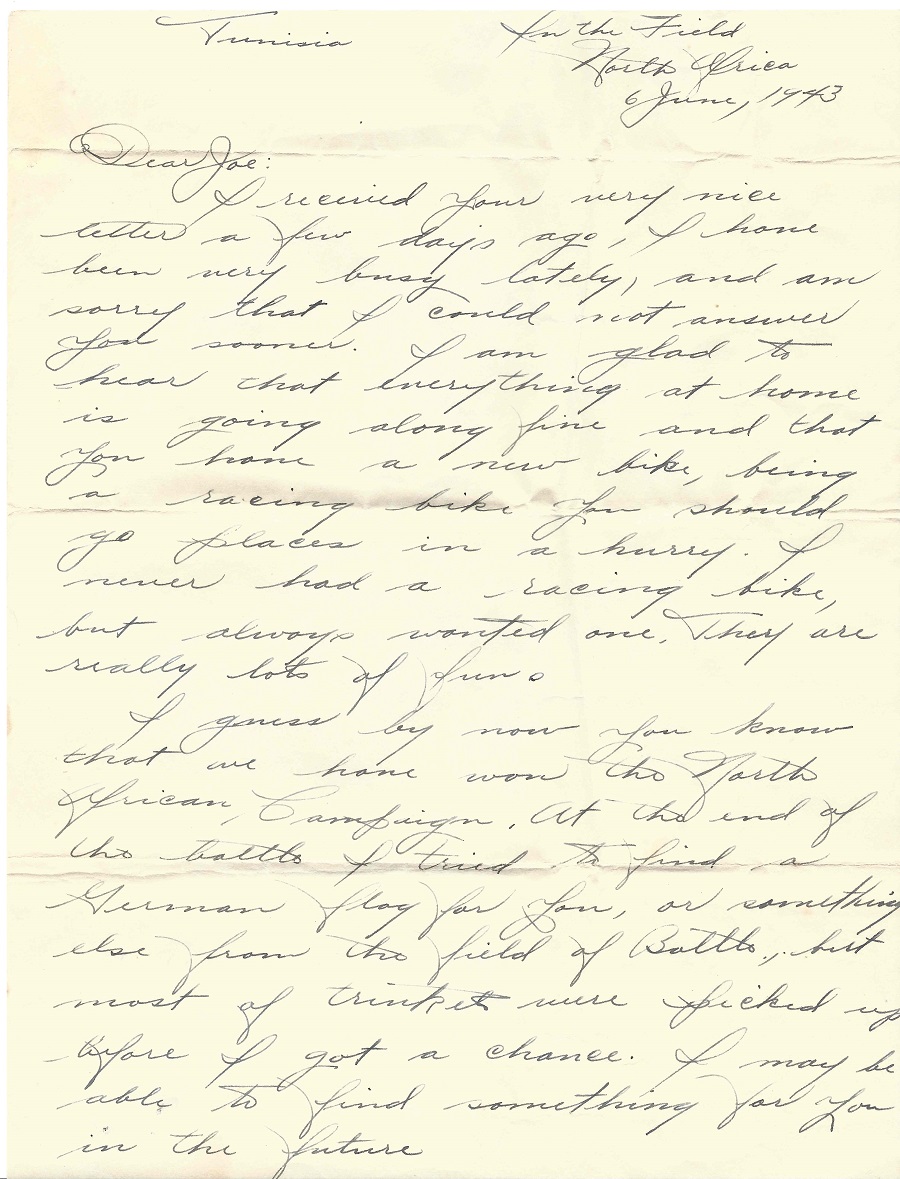 Tunisia
In the Field
North Africa
6 June, 1943
Dear Joe:
I received your very nice
letter a few days ago, I have
been very busy lately, and am
sorry that I could not answer
you sooner. I am glad to
hear that everything at home
is going along fine and that
you have a new bike, being
a racing bike you should
go places in a hurry. I
never had a racing bike,
but always wanted one. They are
really lots of fun.
I guess by now you know
that we have won the North
African Campaign. At the end of
the battle I tried to find a
German flag for you, or something
else from the field of Battle, but
most of trinkets were picked up
before I got a chance. I may be
able to find something for you
in the future